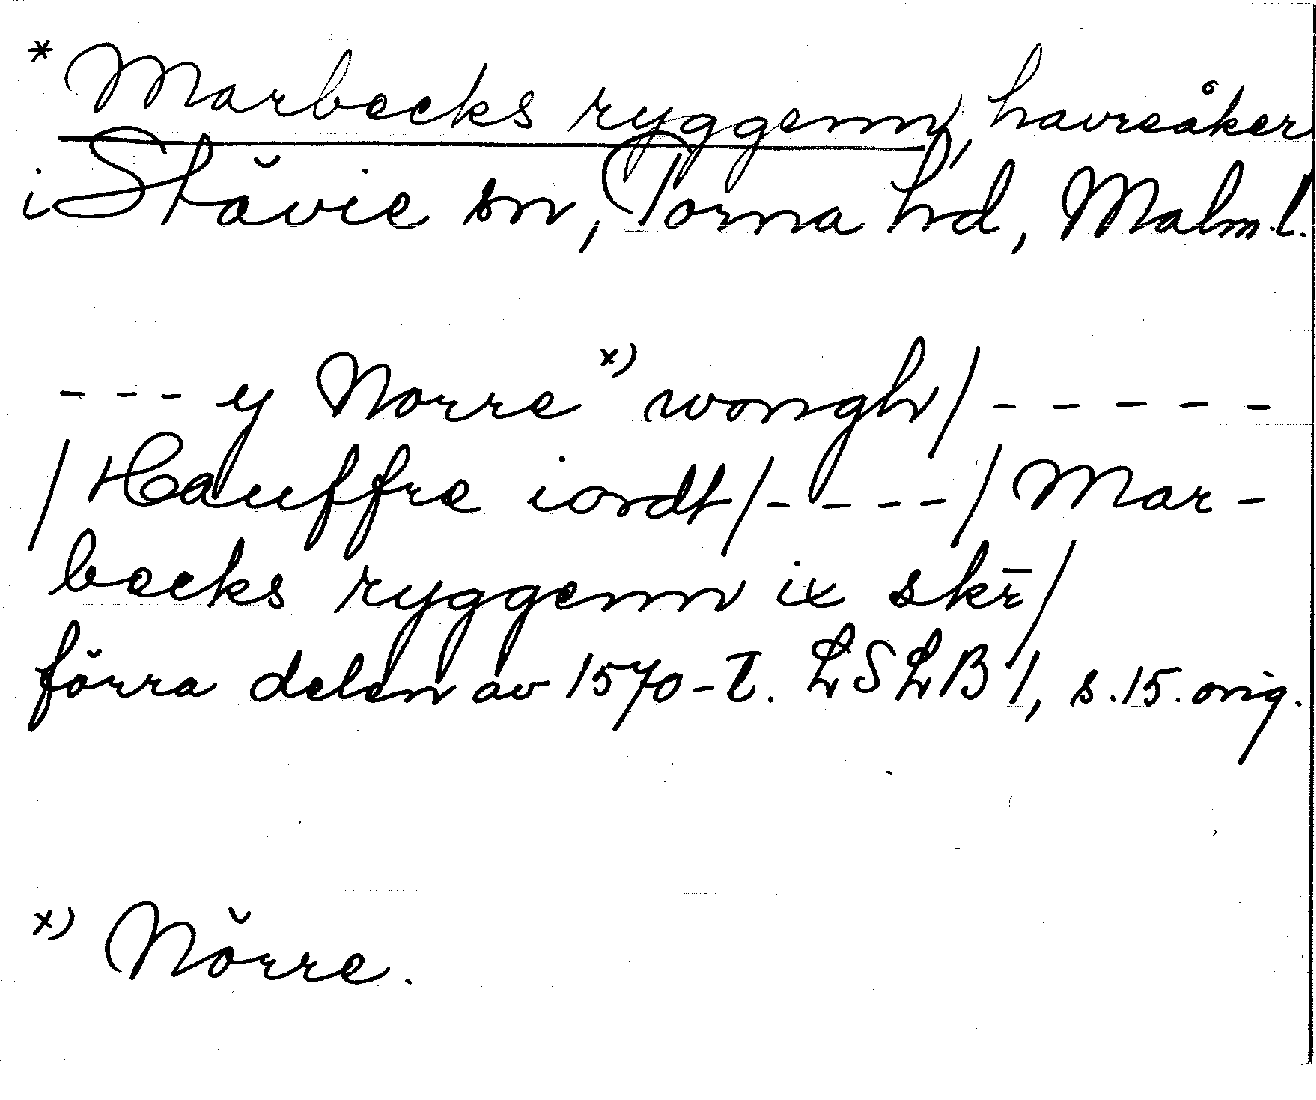 * Marbecks ryggenn, havreåker
i Stävie sn, Torna hd, Malm.l.
--- y Norre x) wongh/ -----
/Hauffre iordt/----/Mar-
becks ryggenn ix skr̄/
förra delen av 1570-t. LSLB 1, s.15. orig.
x) Nŏrre.